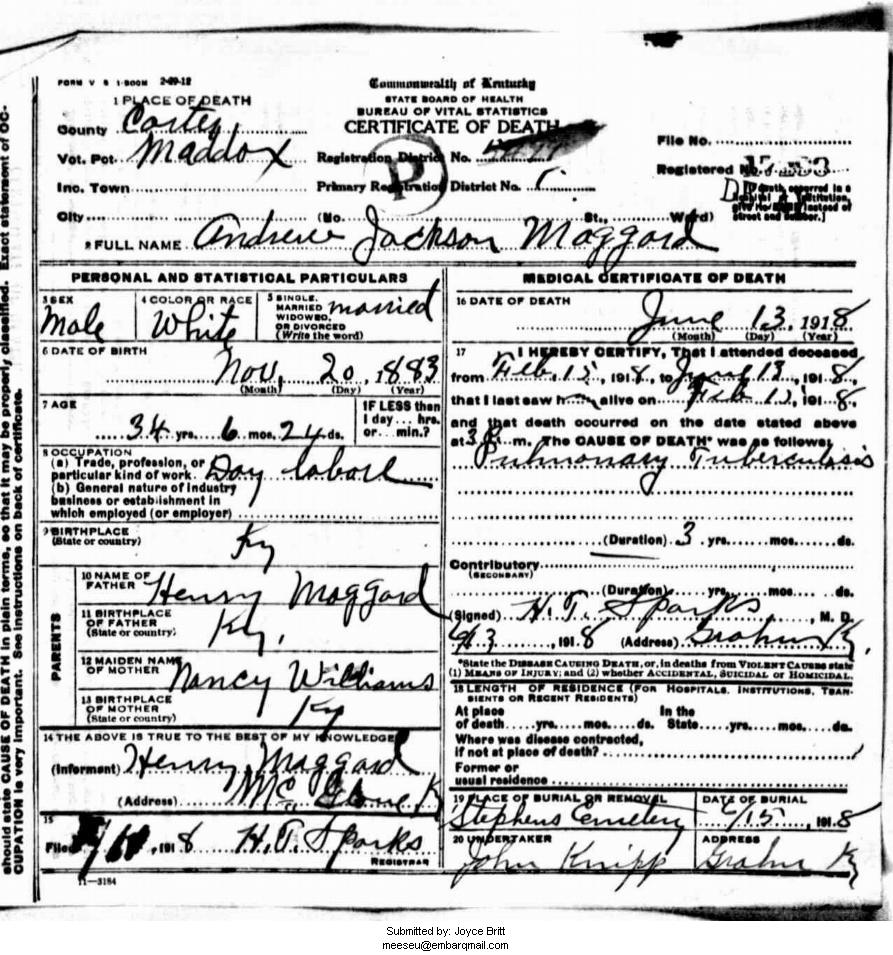 FORM V S 1-500M 2-29-12
Commonwealth of Kentucky
STATE BOARD OF HEALTH
BUREAU OF VITAL STATISTICS
CERTIFICATE OF DEATH
1 PLACE OF DEATH
County Carter
Vot. Pct. Maddox
Inc. Town
City (No. St., Ward)
Registration District No.
Primary Registration District No.
P
File No.
Registered No.
[If death occurred in a Hospital or Institution, give its NAME instead of street and number.]
2 FULL NAME Andrew Jackson Maggard
PERSONAL AND STATISTICAL PARTICULARS
3 SEX Male
4 COLOR OR RACE White
5 SINGLE, MARRIED WIDOWED, OR DIVORCED (Write the word) married
6 DATE OF BIRTH
Nov, 20, 1883
(Month) (Day) (Year)
7 AGE
34 yrs. 6 mos. 24 ds.
IF LESS than 1 day... hrs. or... min.?
8 OCCUPATION
(a) Trade, profession, or particular kind of work Day labore
(b) General nature of Industry business or establishment in which employed (or employer)
9 BIRTHPLACE (State or country) Ky
PARENTS
10 NAME OF FATHER Henry Maggard
11 BIRTHPLACE OF FATHER (State or country) Ky.
12 MAIDEN NAME OF MOTHER Nancy Williams
13 BIRTHPLACE OF MOTHER (State or country) Ky
14 THE ABOVE IS TRUE TO THE BEST OF MY KNOWLEDGE
(Informant) Henry Maggard
(Address) Mc Glone K
15
Filed 1918 H.T. Sparks
REGISTRAR
11-3184
MEDICAL CERTIFICATE OF DEATH
16 DATE OF DEATH
June 13, 1918
(Month) (Day) (Year)
17 I HEREBY CERTIFY, That I attended deceased
from Feb, 15, 1918, to June 13, 1918,
that I last saw h alive on Feb 15, 1918,
and that death occurred on the date stated above
at 3 m. The CAUSE OF DEATH* was as follows:
Pulmonary Tuberculosis
(Duration) 3 yrs. mos. ds.
Contributory
(SECONDARY)
(Duration) yrs. mos. ds.
(Signed) H.T. Sparks, M. D.
6/13, 1918 (Address) Grahn K
*State the DISEASE CAUSING DEATH, or, in deaths from VIOLENT CAUSES state
(1) MEANS OF INJURY; and (2) whether ACCIDENTAL, SUICIDAL OR HOMICIDAL.
18 LENGTH OF RESIDENCE (FOR HOSPITALS, INSTITUTIONS, TRANSIENTS OR RECENT RESIDENTS)
At place of death yrs. mos. ds. In the State yrs. mos. ds.
Where was disease contracted, if not at place of death?
Former or usual residence
19 PLACE OF BURIAL OR REMOVAL Stephens Cemetery
DATE OF BURIAL 6/15, 1918
20 UNDERTAKER John Knipp
ADDRESS Grahn Ky
should state CAUSE OF DEATH in plain terms, so that it may be properly classified. Exact statement of OC-
CUPATION is very important. See instructions on back of certificate.
Submitted by: Joyce Britt
meeseu@embarqmail.com